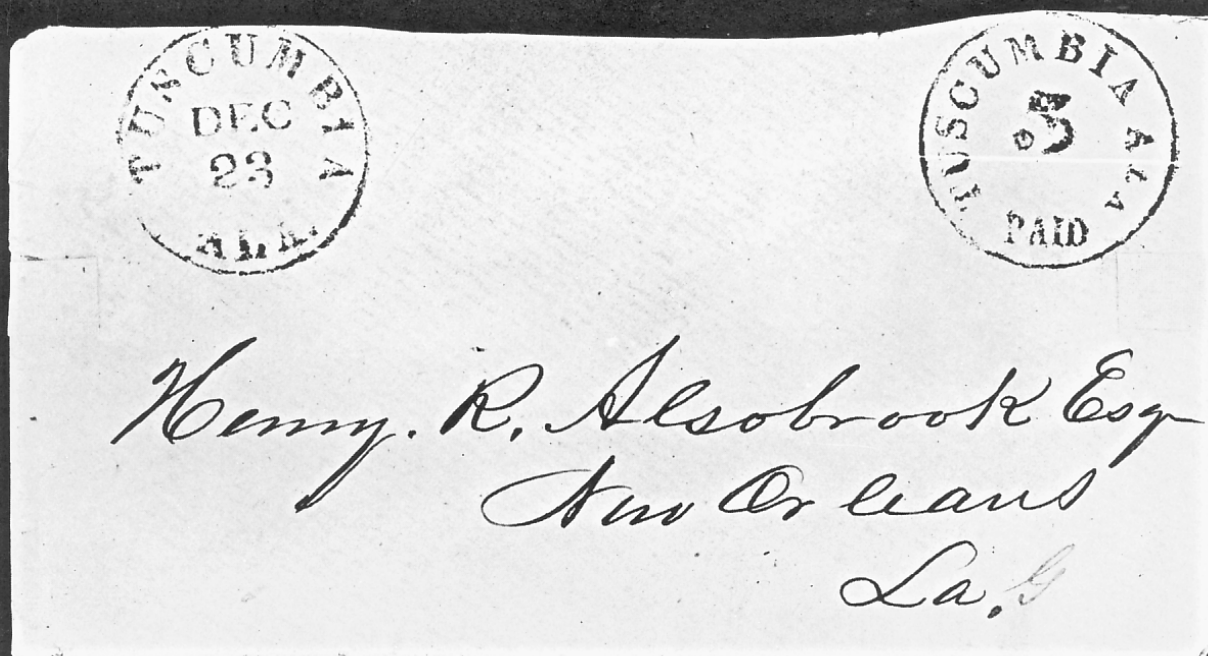 TUSCUMBIA
DEC
23
ALA.
TUSCUMBIA ALA
5
PAID
Henry. R. Alsobrook Esqr
New Orleans
La.